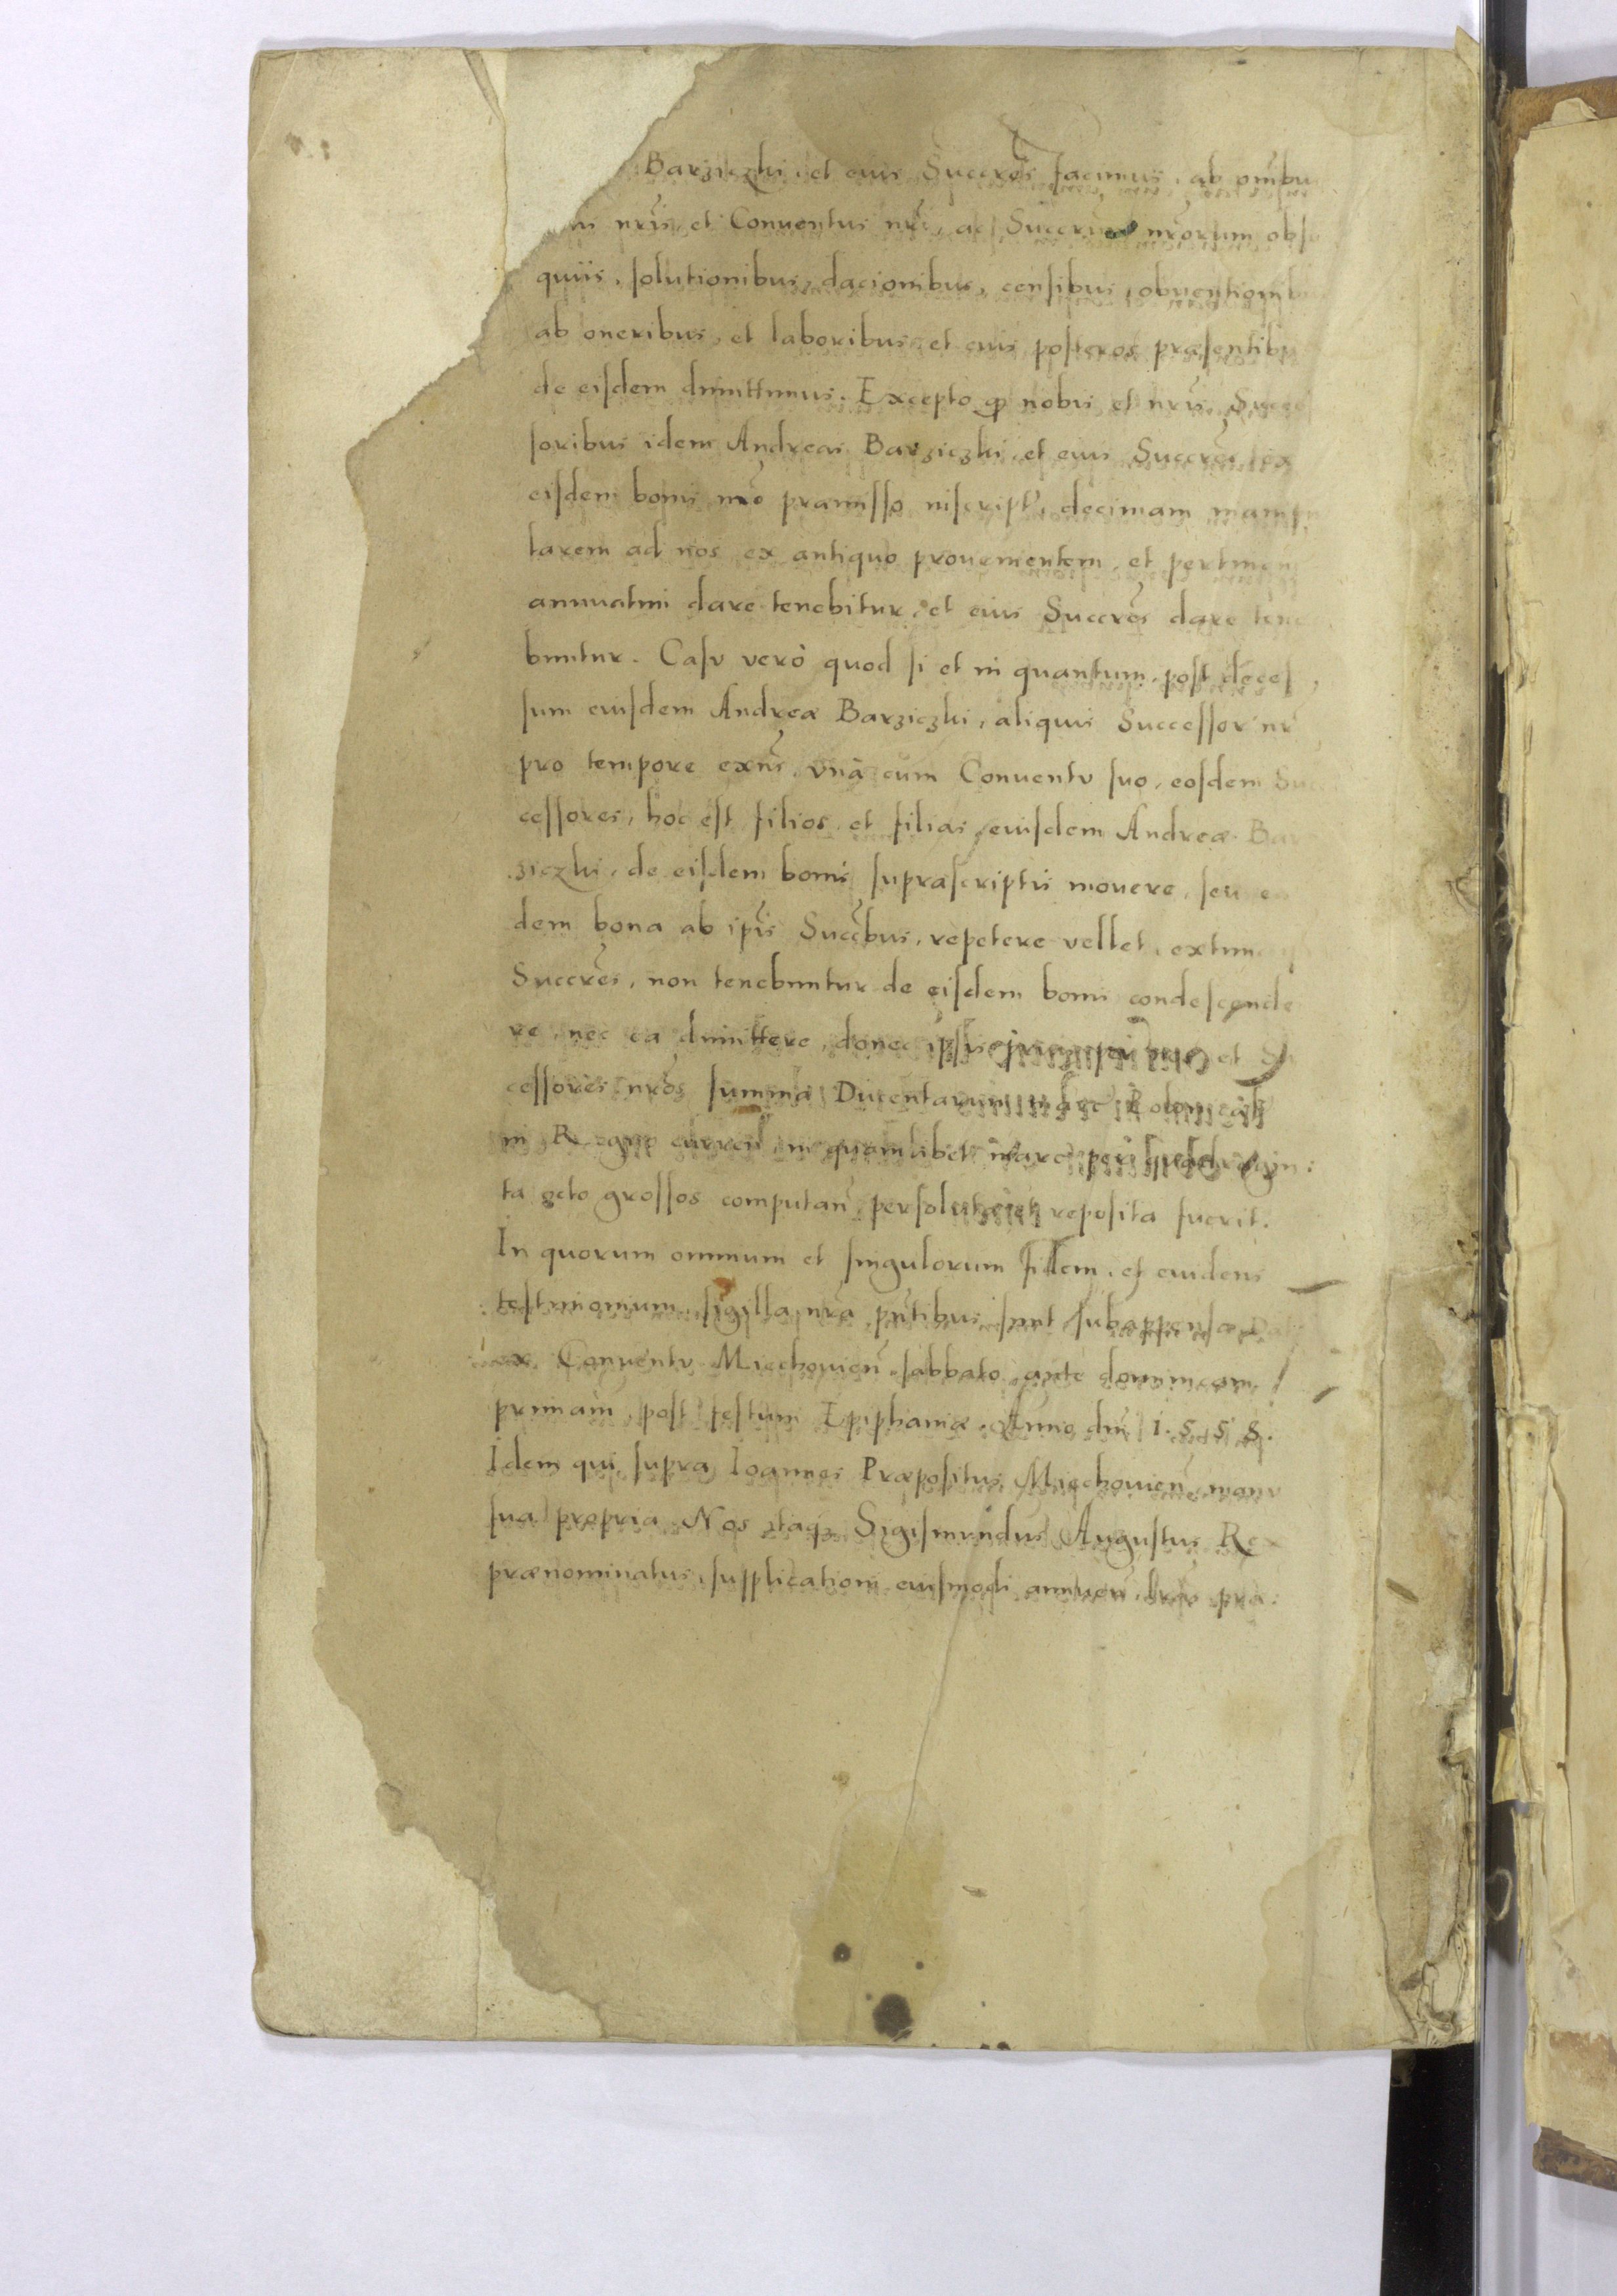 Barziczki, et eius Succr̃es facimus, ab om̃ibu
nr̃is, et Conventus nr̃i, ac nr̃orum obse
quiis, solutionibus, dacionibus, censibus, obventionib
ab oneribus, et laboribus, et eius posteros præsentibu
de eisdem dimittimus. Excepto qꝫ nobis et nr̃is Succes
soribus idem Andreas Barziczki, et eius Succr̃es ex
eisdem bonis mõ præmisso inscript̃, decimam manipu
larem ad nos ex antiquo provenientem, et pertinen
annuatim dare tenebitur, et eius Succr̃es dare tene
buntur. Casu verò quod si et in quantum, post deces
sum eiusdem Andreæ Barziczki, aliquis Successor nr̃
pro tempore exñs, vnà cum Conventu suo, eosdem Suc
cessores, hoc est filios, et filias, eiusdem Andreæ Bar
ziczki, de eisdem bonis suprascriptis movere, seu ea
dem bona ab ip̃is Succ̃bus, repetere vellet, extunc
Succr̃es, non tenebuntur de eisdem bonis condescende
re, nec ea dimittere, donec ipsis per et Su
cessores nr̃os summa Ducentarum marc̃ Polonicaƚ
in Regno curreñ, in quamlibet marcã per quadragin:
ta octo grossos computañ, persoluta et reposita fuerit.
In quorum omnium et singulorum fidem, et evidens
testimonium, sigilla nr̃a pñtibus sunt subappensa. Dat
ex Conventu Miechovieñ, sabbato ante dominicam
primam, post festum Epiphaniæ. Anno dñi 1.5.5.8.
Idem qui supra Ioannes Præpositus Miechovieñ manu
sua propria Nos itaqꝫ Sigismundus Augustus Rex
prænominatus, supplicationi eiusmodi annueñ, lr̃as præ: